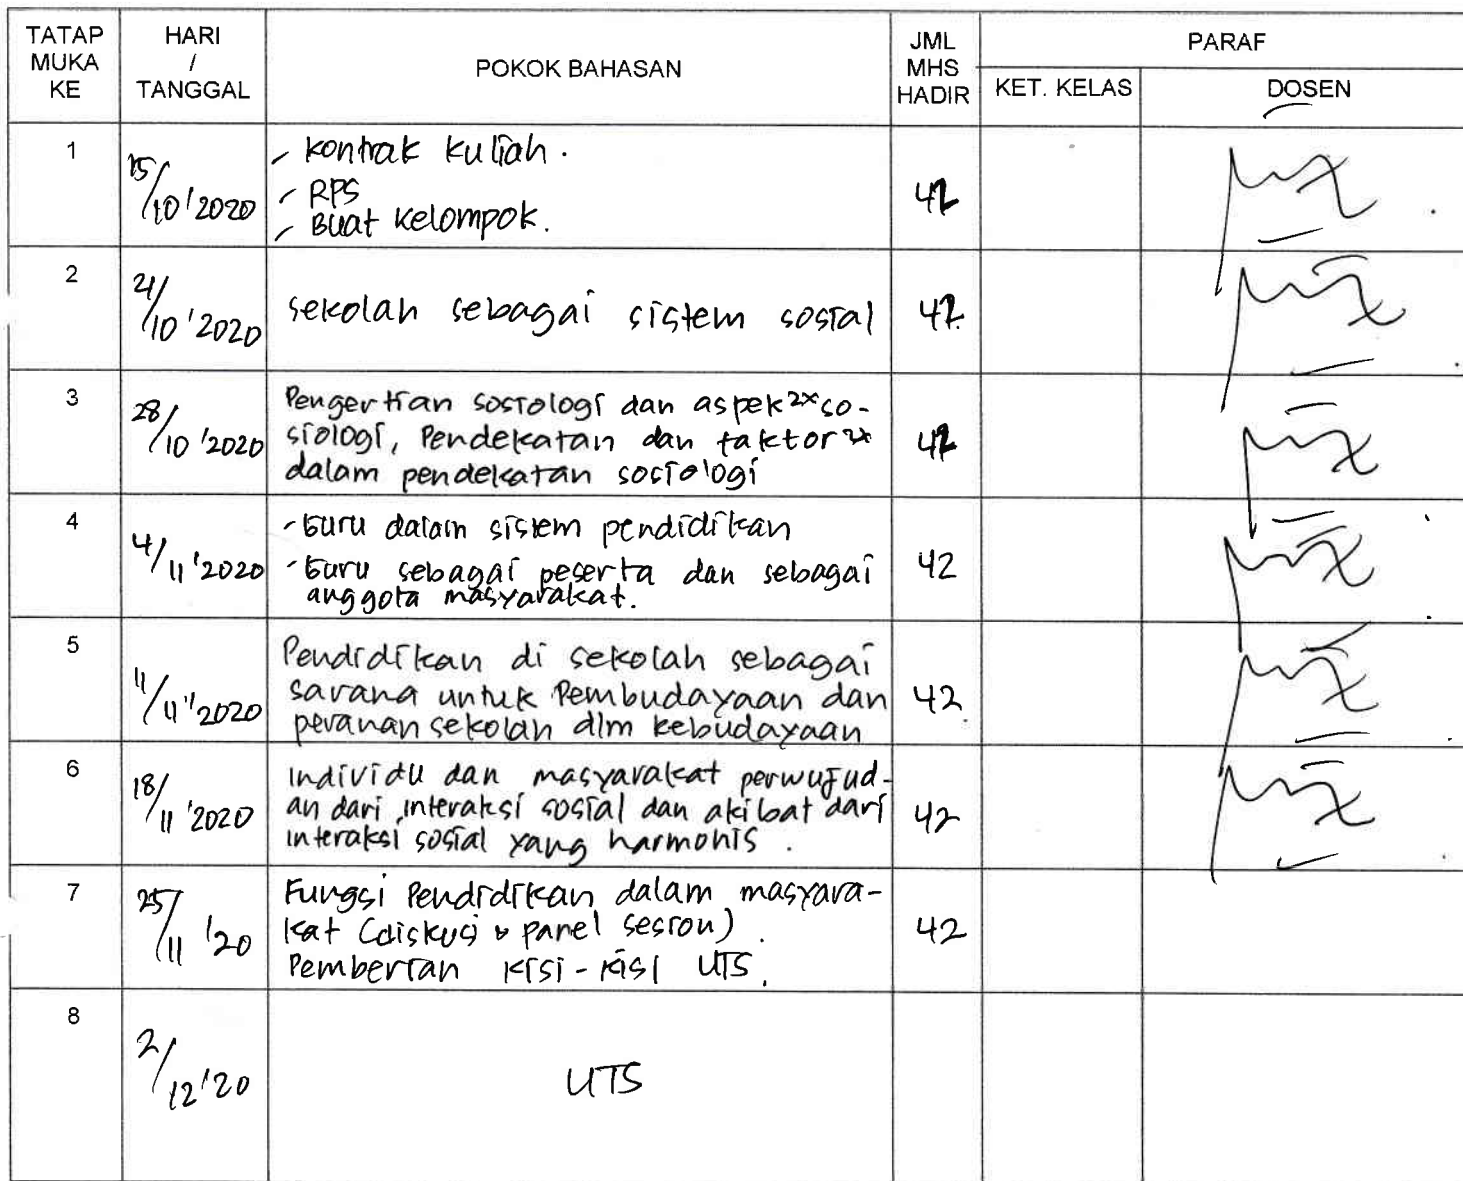 TATAP MUKA KE
HARI / TANGGAL
POKOK BAHASAN
JML MHS HADIR
PARAF
KET. KELAS
DOSEN
1
15/10'2020
- kontrak kuliah.
- RPS
- Buat kelompok.
42
2
21/10'2020
sekolah sebagai sistem sosial
42
3
28/10'2020
Pengertian sosiologi dan aspek2x so-
siologi, Pendekatan dan faktor2x
dalam pendekatan sosiologi
42
4
4/11'2020
- Guru dalam sistem pendidikan
- Guru sebagai peserta dan sebagai
anggota masyarakat.
42
5
11/11'2020
Pendidikan di sekolah sebagai
sarana untuk Pembudayaan dan
peranan sekolah dlm kebudayaan
42
6
18/11'2020
Individu dan masyarakat perwujud-
an dari interaksi sosial dan akibat dari
interaksi sosial yang harmonis.
42
7
25/11'20
Fungsi Pendidikan dalam masyara-
kat (diskusi & panel sesion).
Pemberian kisi-kisi UTS.
42
8
2/12'20
UTS